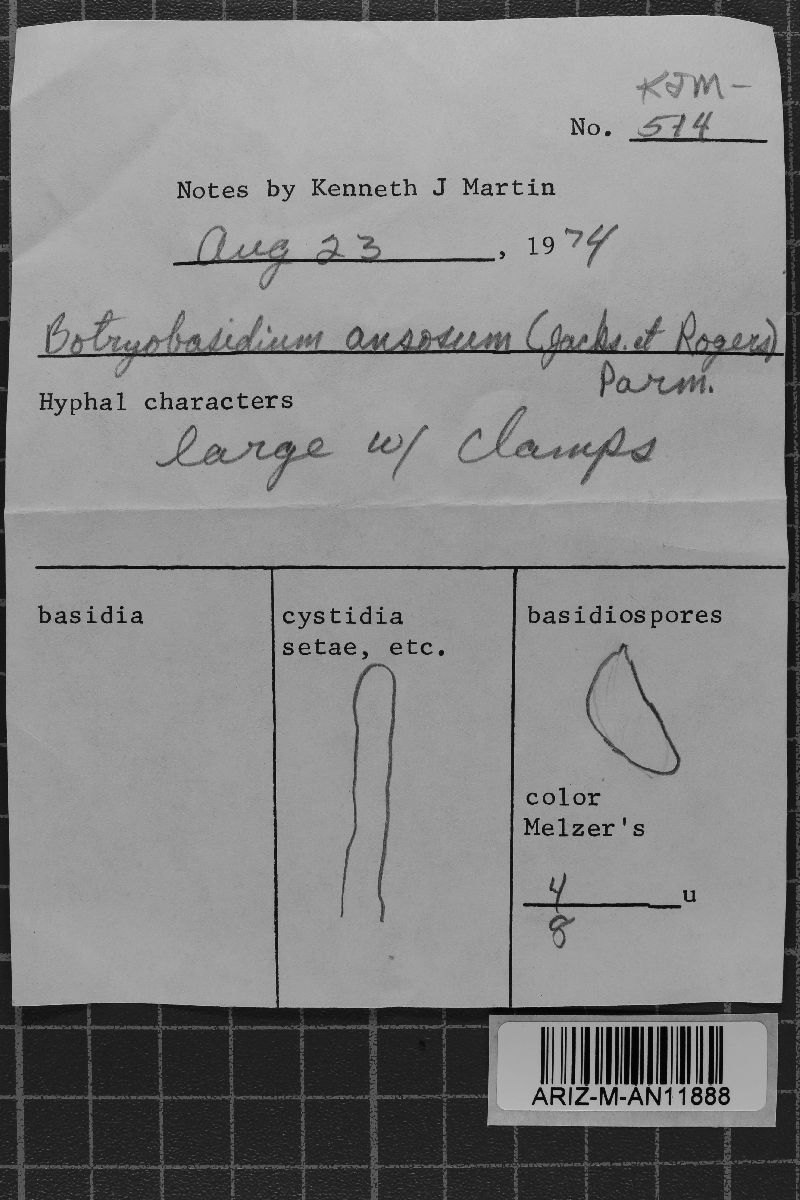 KJM-
No. 514
Notes by Kenneth J Martin
Aug 23, 1974
Botryobasidium ansosum (Jacks. et Rogers)
Parm.
Hyphal characters
large w/ clamps
basidia
cystidia
setae, etc.
basidiospores
color
Melzer's
4
u
8
ARIZ-M-AN11888